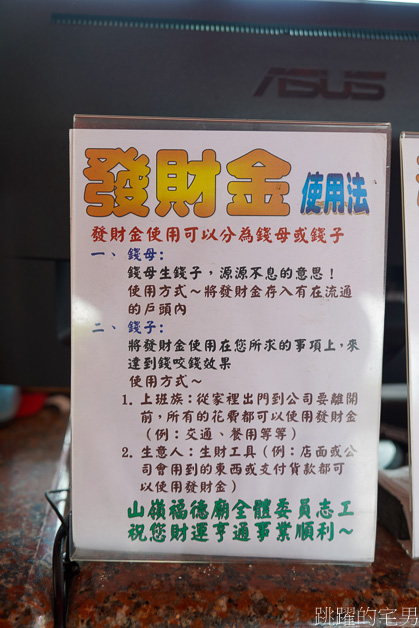 ASUS
發財金 使用法
發財金使用可以分為錢母或錢子
一、錢母:
錢母生錢子，源源不息的意思！
使用方式～將發財金存入有在流通
的戶頭內
二、錢子:
將發財金使用在您所求的事項上，來
達到錢咬錢效果
使用方式～
1. 上班族：從家裡出門到公司要離開
前，所有的花費都可以使用發財金
（例：交通、餐用等等）
2. 生意人：生財工具（例：店面或公
司會用到的東西或支付貨款都可
以使用發財金）
山嶺福德廟全體委員志工
祝您財運亨通事業順利～
跳躍的宅男